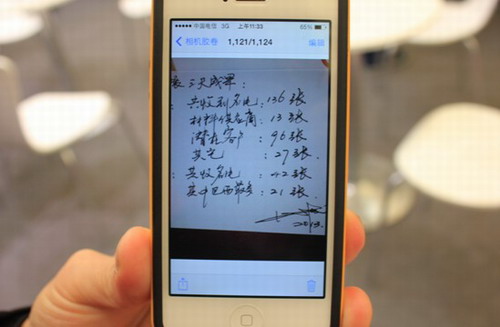 中国电信 3G 上午11:33 65%
相机胶卷 1,121/1,124 编辑
三天成果：
共收到名片：136张
材料供应商：13张
潜在客户：96张
其它：27张.
：共收名片：42张
其中巴西联系：21张.
2013.